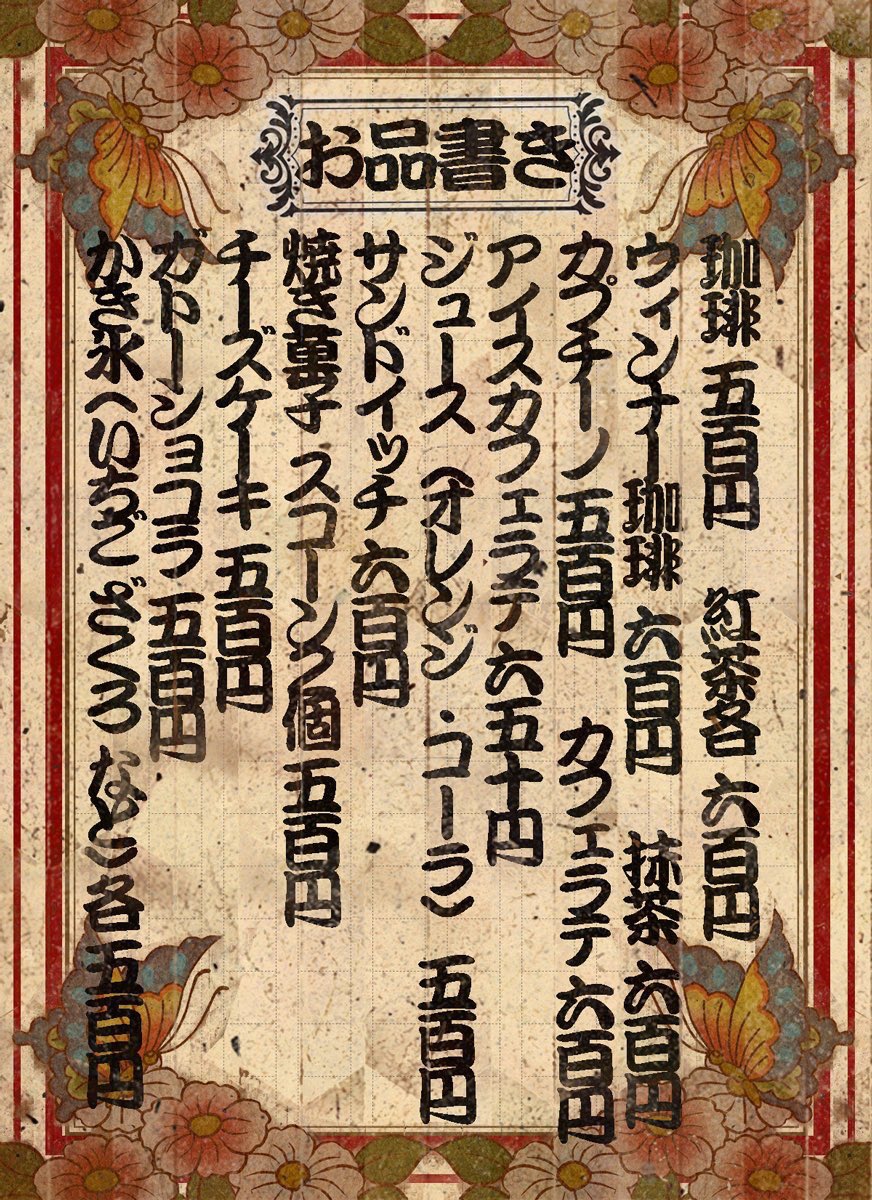 お品書き
珈琲 五百円 紅茶各 六百円
ウィンナー珈琲 六百円 抹茶 六百円
カプチーノ 五百円 カフェラテ 六百円
アイスカフェラテ 六五十円
ジュース（オレンジ・コーラ） 五百円
サンドイッチ 六百円
焼き菓子 スコーン2個 五百円
チーズケーキ 五百円
ガトーショコラ 五百円
かき氷（いちご ざくろ など）各 五百円